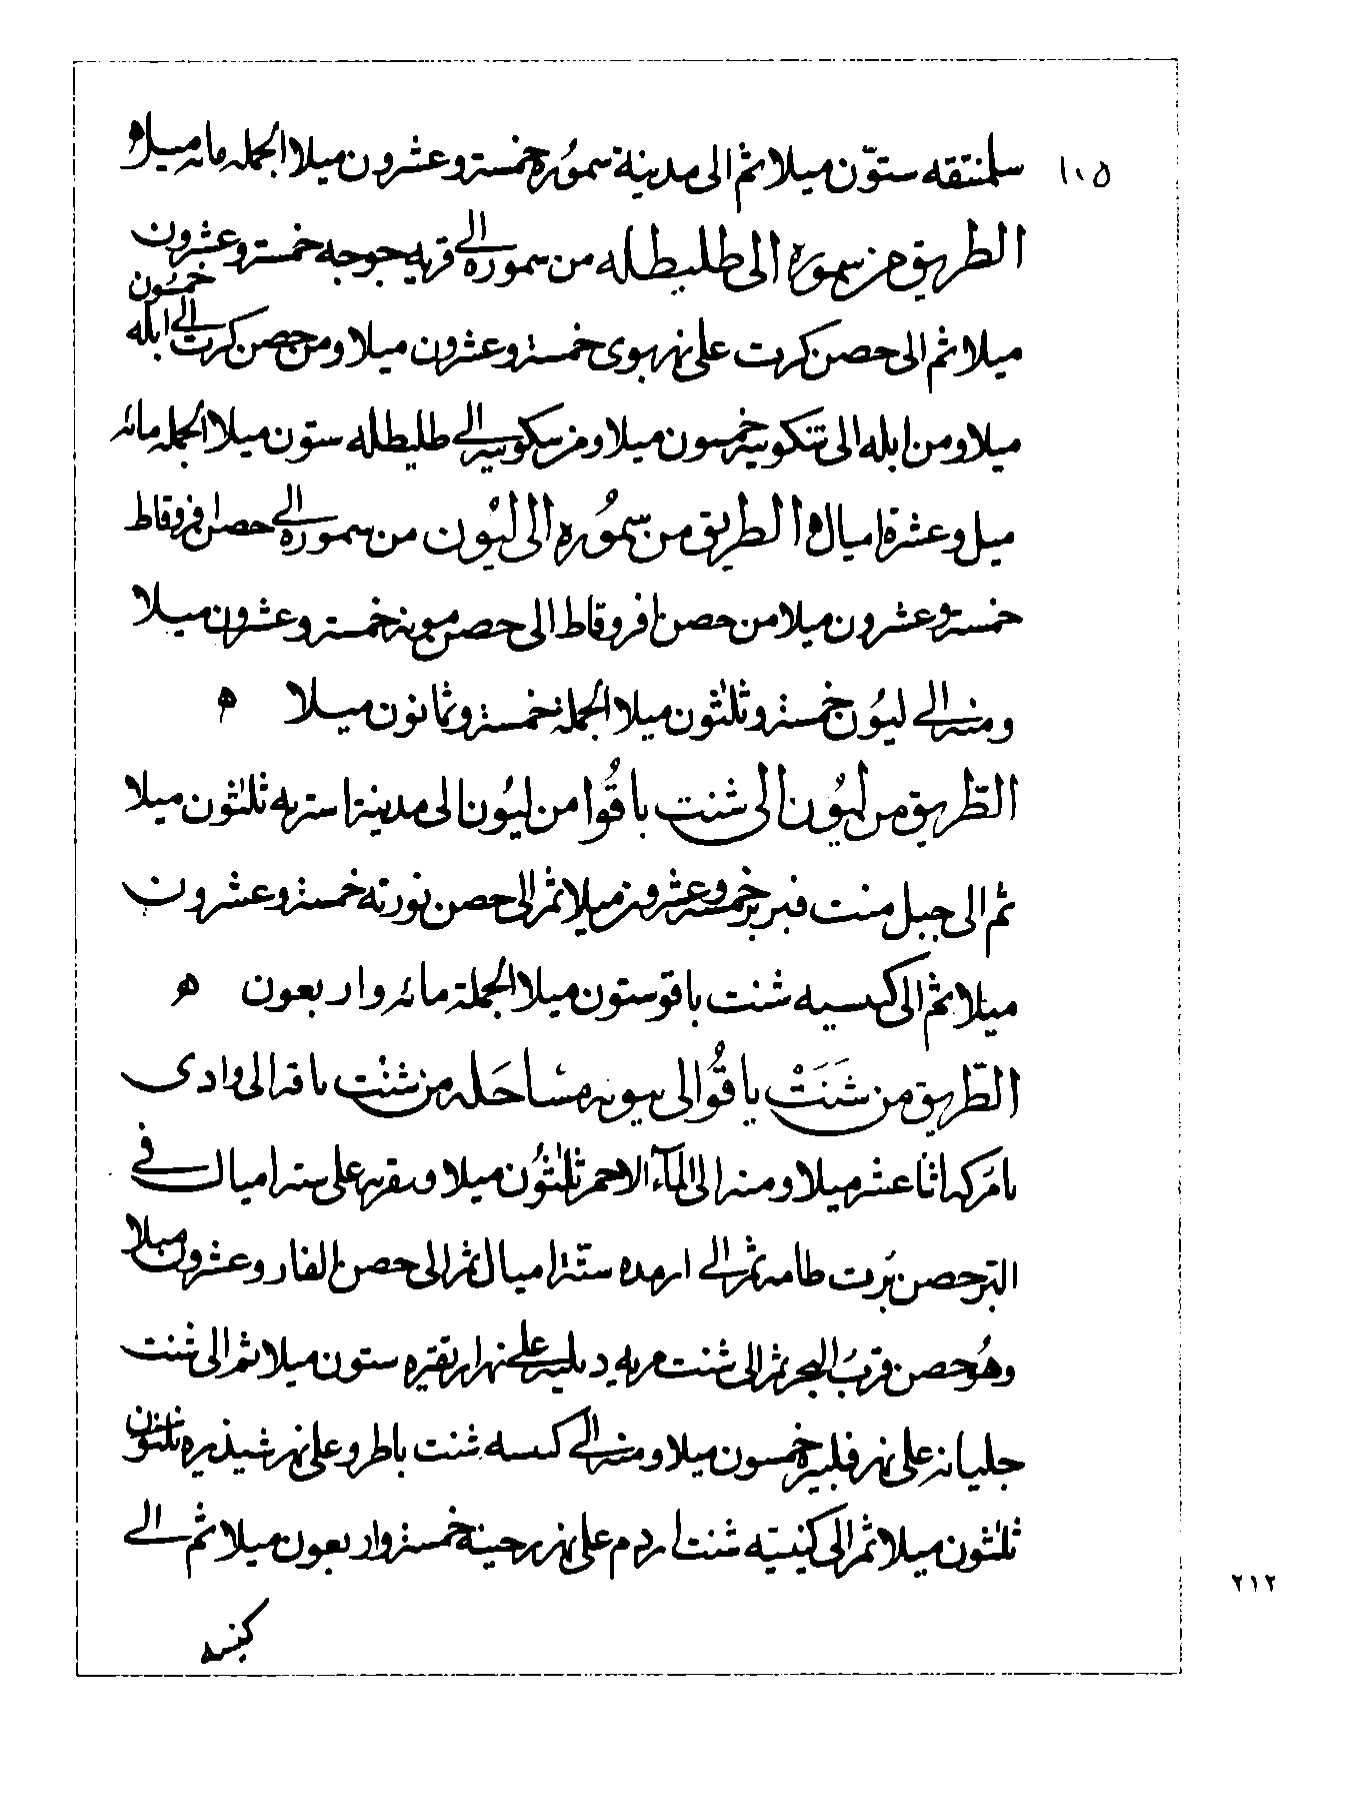 ١٠٥
سلمنتقه ستّون ميلا ثم الى مدينة سمُوره خمسة وعشرون ميلا الجمله مائه ميل ه
الطريق من سموره الى طليطله من سموره الى قريه جوجه خمسة وعشرون
ميلا ثم الى حصن كرت على نهر بوى خمسة وعشرون ميلا ومن حصن كرت الى ابله خمسون
ميلا ومن ابله الى تنكوبية خمسون ميلا ومن الى طليطله ستون ميلا الجمله مائه
ميل وعشرة اميال ه الطريق من سمُوره الى ليُون من سموره الى حصن افروقاط
خمسة وعشرون ميلا من حصن افروقاط الى حصن مونه خمسة وعشرون ميلا
ومنه الى ليُون خمسة وثلثون ميلا الجملة خمسة وثمانون ميلا ه
الطّريق من ليُون الى شنت ياقُوا من ليُون الى مدينة استربه ثلثون ميلا
ثم الى جبل منت فبرير خمسة وعشرون ميلا ثم الى حصن نورته خمسة وعشرون
ميلا ثم الى كنيسيه شنت ياقو ستون ميلا الجملة مائه واربعون ه
الطّريق من شَنَتْ ياقُوا الى بيونه مسَاحَله من شنْت ياقه الى وادى
تامَركه اثنا عشر ميلا ومنه الى المآء الاحمر ثلثُون ميلا وبقربه على ستة اميال فى
البر حصن بُرت طامه ثم الى ارمده ستّة اميال ثم الى حصن الفار وعشرون ميلا
وهُو حصن قربُ البحر ثم الى شنت مريه دبليه على نهر ارنقيره ستون ميلا ثم الى شنت
جليانه على نهر فلبيره خمسون ميلا ومنه الى كنيسه شنت باطر وعلى نهر شيذيره ثلثون
ثلثون ميلا ثم الى كنيسة شنت اردم على نهر رحينه خمسة واربعون ميلا ثم الى
كنيسه
٢١٢